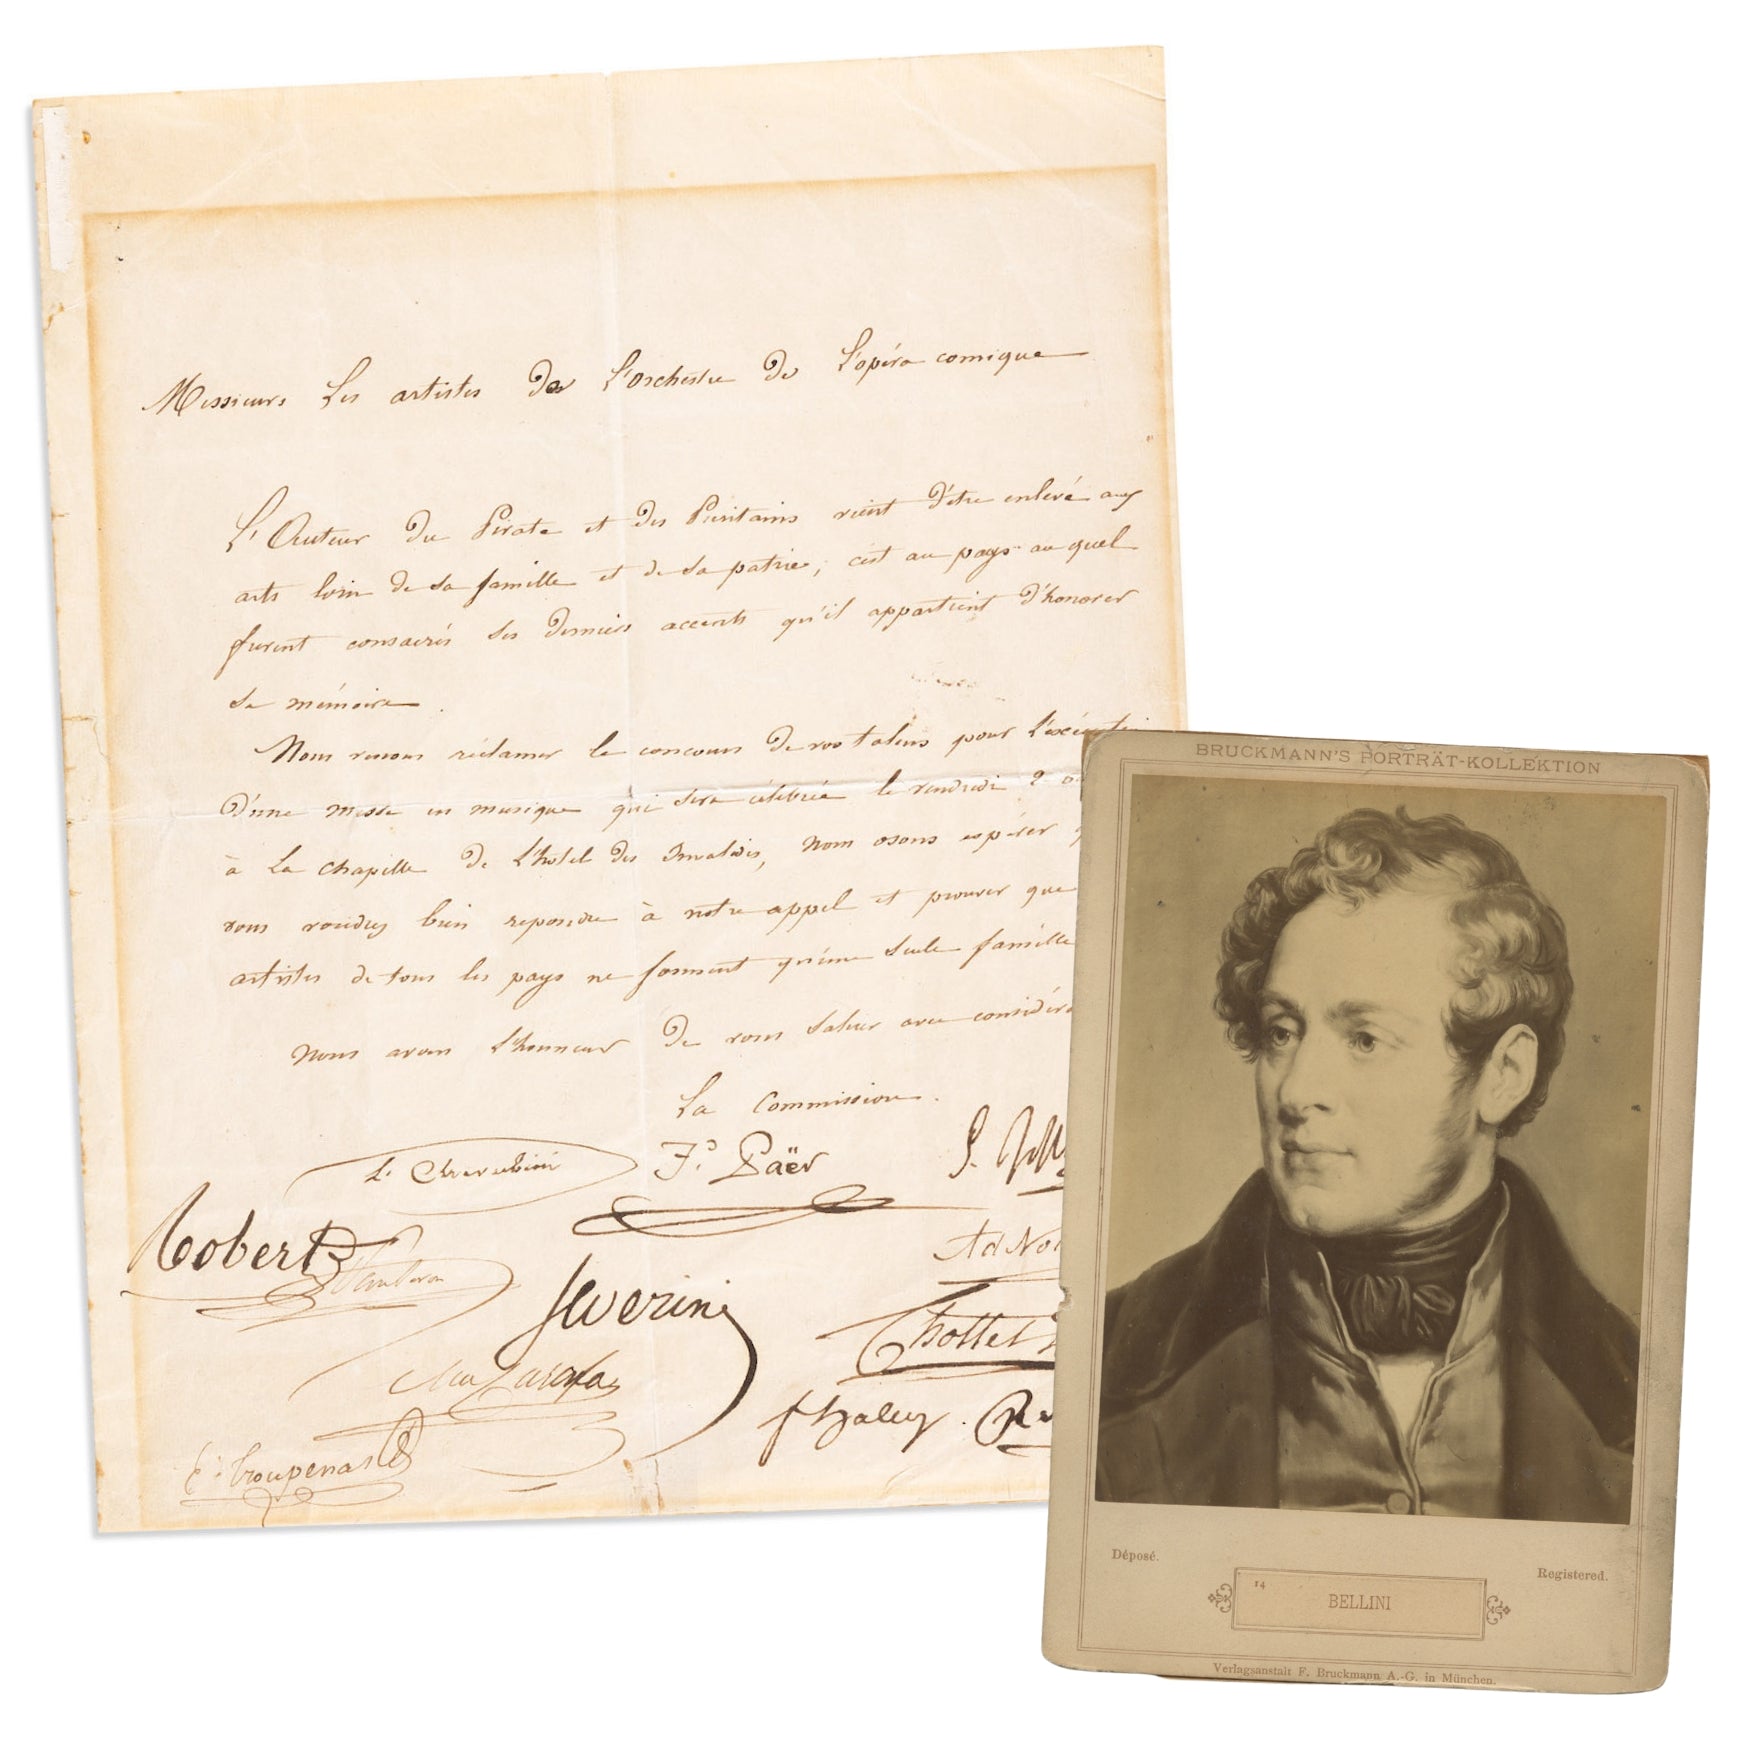 Messieurs Les artistes de L'Orchestre de L'opéra comique
L'Auteur du Pirate et des Puritains vient d'être enlevé aux
arts loin de sa famille et de sa patrie; c'est au pays auquel
furent consacrés ses derniers accents qu'il appartient d'honorer
sa mémoire.
Nous venons réclamer le concours de vos talens pour L'exécution
d'une messe en musique qui sera célébrée le vendredi 2
à La chapelle de L'hotel des Invalides, nous osons espérer
vous voudrez bien repondre à notre appel et prouver que
artistes de tous les pays ne forment qu'une seule famille
nous avons L'honneur de vous saluer avec
La Commission.
L. Cherubini
Fd. Paër
Robert
Panseron
Severini
Ad No
Chollet
Carafa
fhalevy.
Es. Troupenas
BRUCKMANN'S PORTRÄT-KOLLEKTION
Déposé.
Registered.
14
BELLINI
Verlagsanstalt F. Bruckmann A.-G. in München.